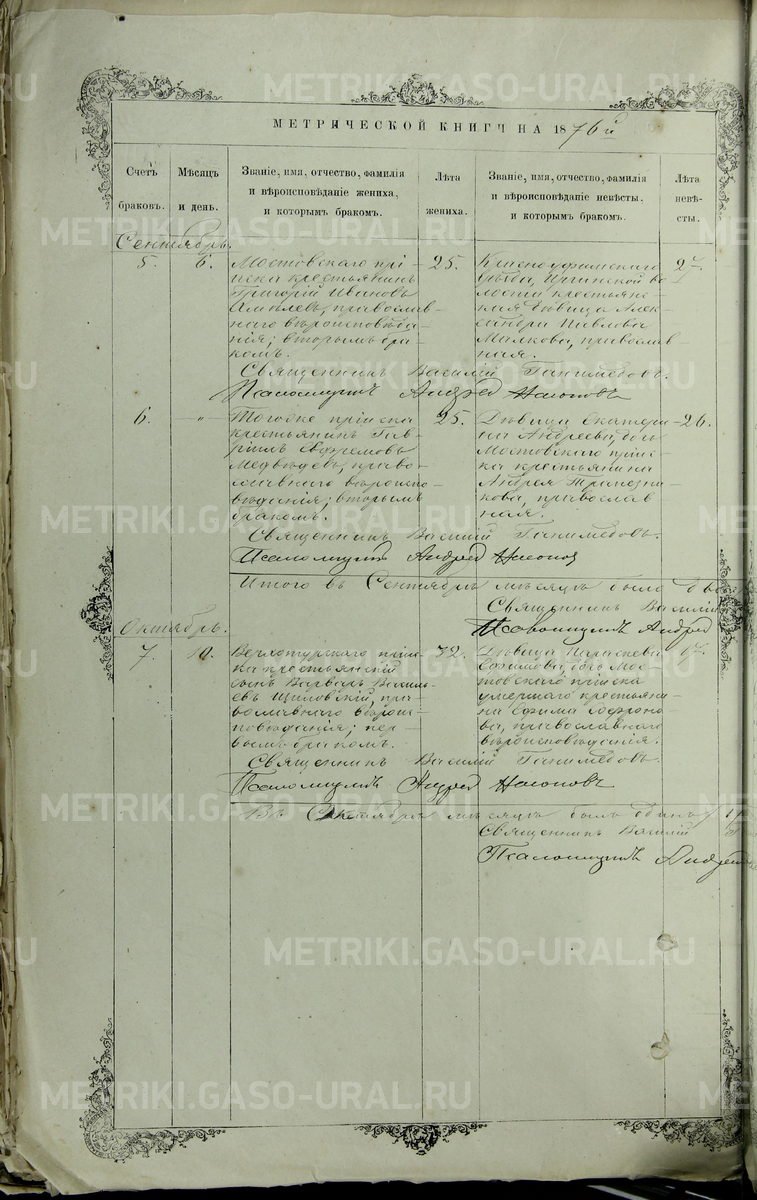 METRIKI.GASO-URAL.RU
МЕТРИЧЕСКОЙ КНИГИ НА 1876й
Счетъ браковъ.
Мѣсяцъ и день.
Званіе, имя, отчество, фамилія
и вѣроисповѣданіе жениха,
и которымъ бракомъ.
Лѣта жениха.
Званіе, имя, отчество, фамилія
и вѣроисповѣданіе невѣсты,
и которымъ бракомъ.
Лѣта невѣ-
сты.
Сентябрь.
5.
6.
Мостовскаго прі-
иска крестьянинъ
Григорій Ивановъ
православ-
наго вѣроисповѣда-
нія; вторымъ бра-
комъ.
25.
Красноуфимскаго
уѣзда, Иргинской во-
лости крестьянс-
кая дѣвица Алек-
сандра Павлова
православ-
ная.
Священникъ Василій Ганимедовъ.
Псаломщикъ Андрей Насоновъ
6.
"
Тогоже пріиска
крестьянинъ Гав-
ріилъ Ефремовъ
Медвѣдевъ, право-
славнаго вѣроиспо-
вѣданія; вторымъ
бракомъ.
25.
Дѣвица Екатери-
на Андреева, дочь
Мостовскаго пріис-
ка крестьянина
Андрея Трапезни-
кова, православ
ная.
26.
Священникъ Василій Ганимедовъ.
Псаломщикъ Андрей Насоновъ
Итого въ Сентябрѣ мѣсяцѣ было два
Священникъ Василій
Псаломщикъ Андрей
Октябрь.
7.
Верхотурскаго пріис-
ка крестьянскій
сынъ Василь-
евъ пра-
вославнаго вѣроис-
повѣданія; пер-
вымъ бракомъ.
Дѣвица Параскева
Ефимова, дочь Мос-
товскаго пріиска
умершаго крестьяни-
на Ефима
православнаго
вѣроисповѣданія.
Священникъ Василій Ганимедовъ.
Псаломщикъ Андрей Насоновъ
Въ Октябрѣ мѣсяцѣ былъ одинъ
Священникъ Василій
Псаломщикъ Андрей